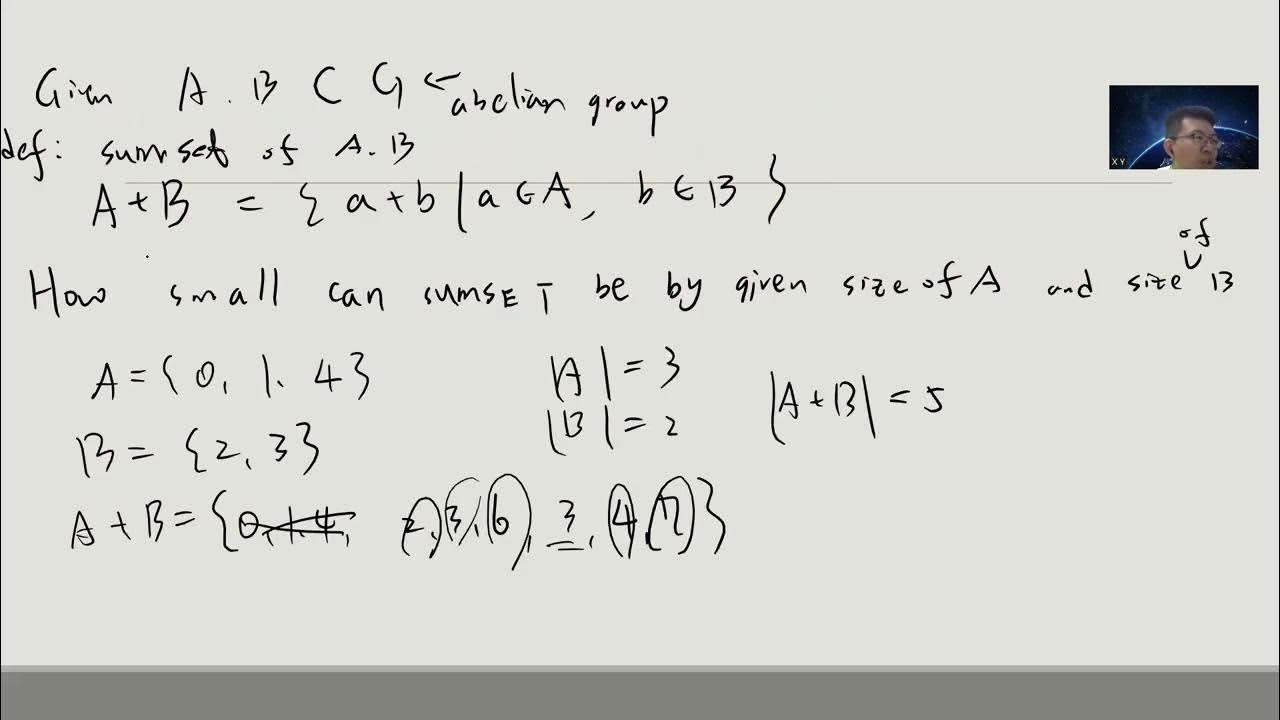 Given A. B ⊂ G ← abelian group
def: sumset of A. B
A + B = { a + b | a ∈ A, b ∈ B }
of
How small can sumsET be by given size of A and size B
A = { 0, 1. 4 } |A| = 3
|A + B| = 5
B = { 2, 3 } |B| = 2
A + B = { 0, 1, 4, 2, 3, 6, 3, 4, 7 }
X Y